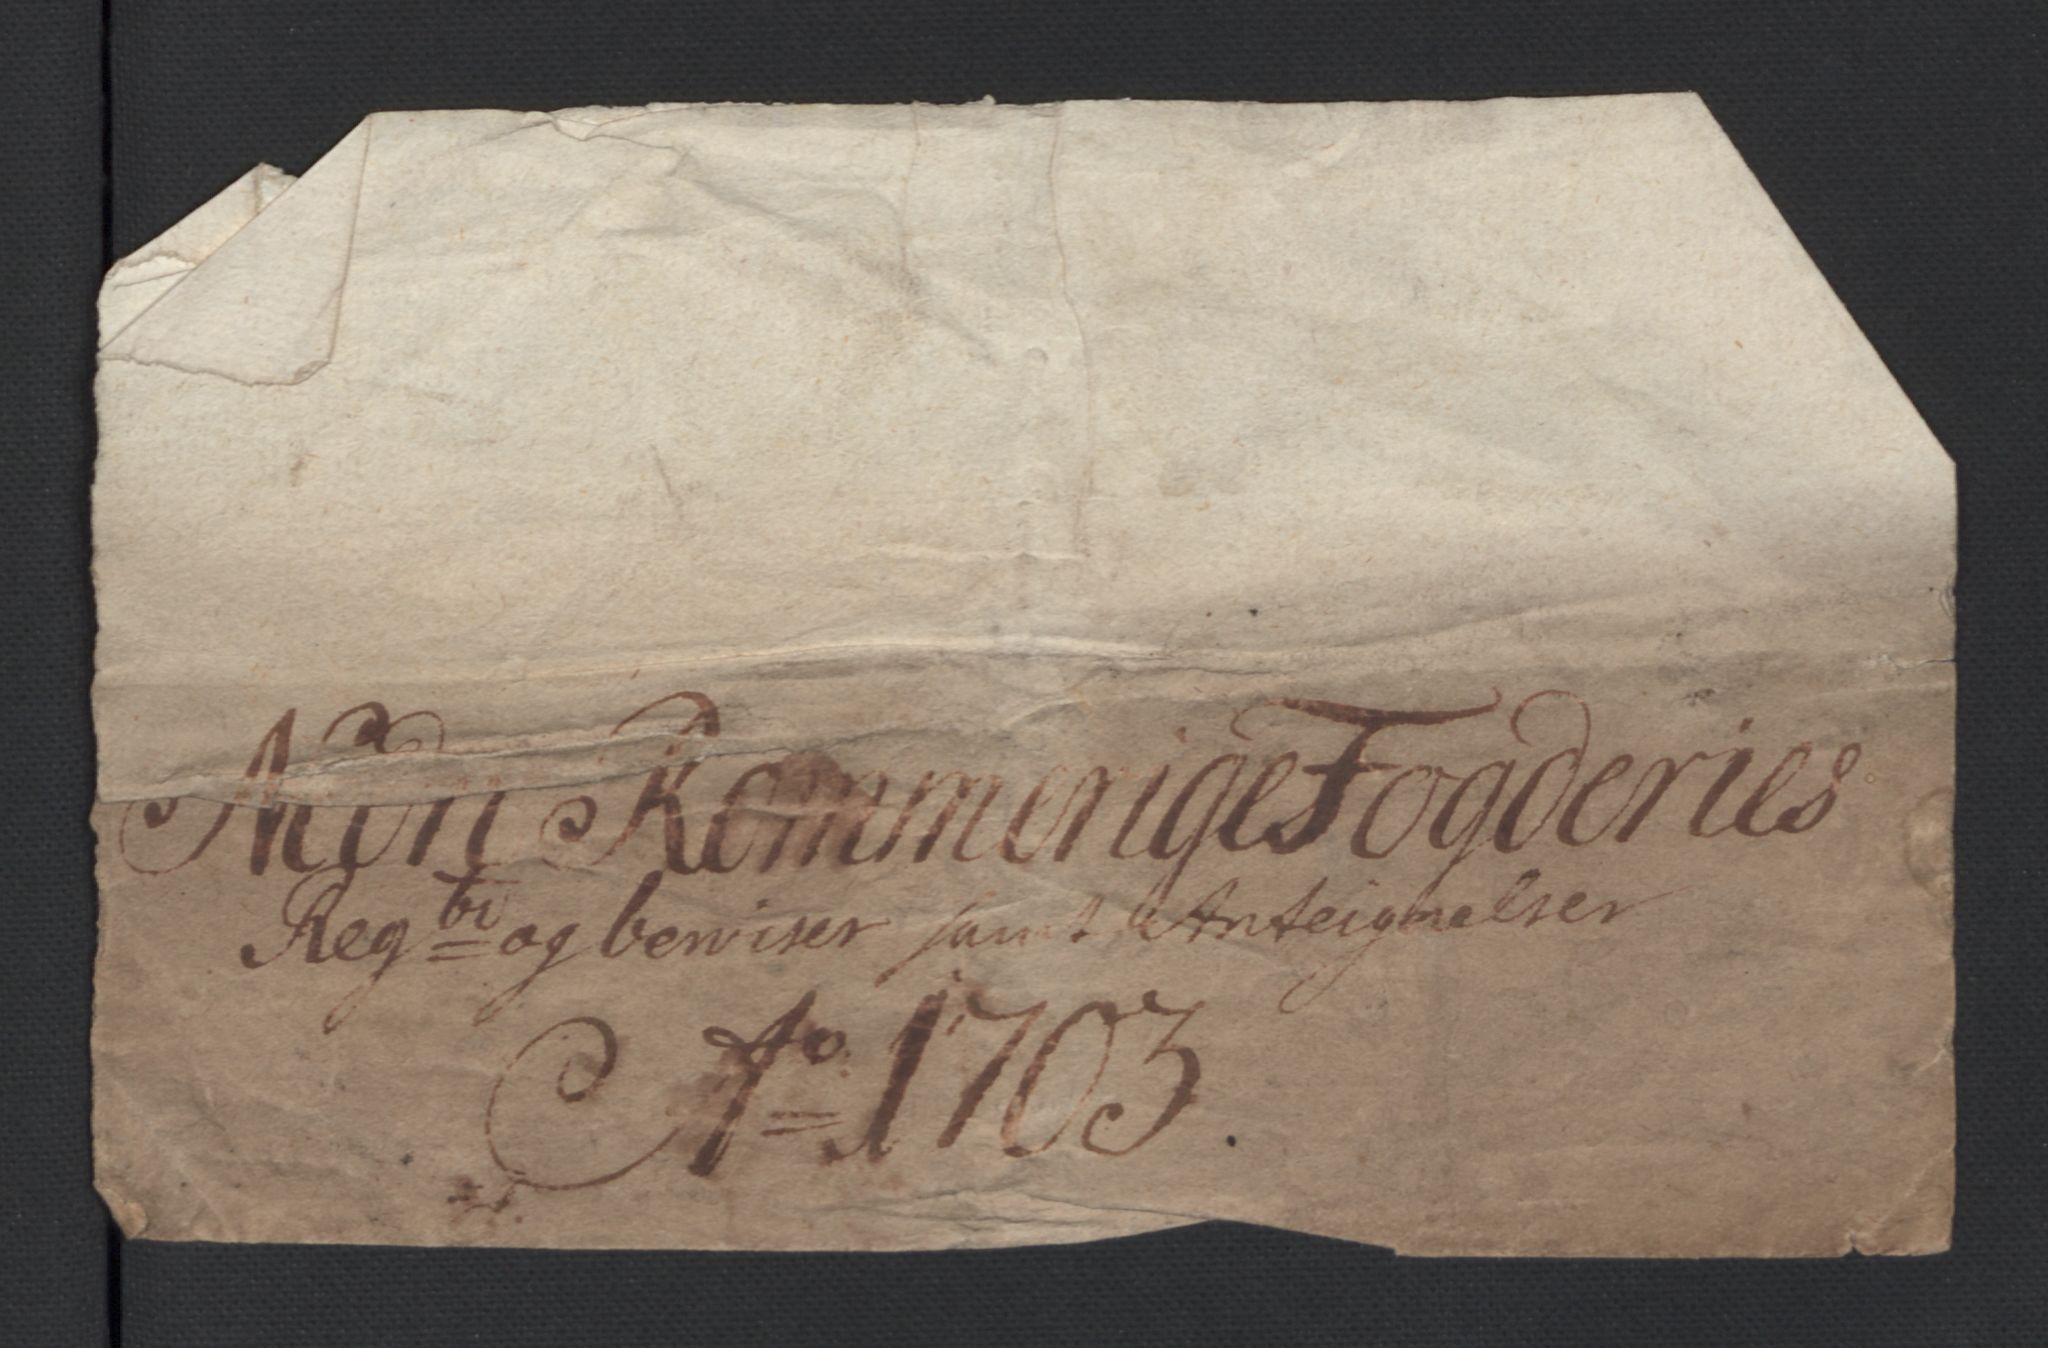 Neder Rommerige Fogderies
Reg.br og bewiser samt Anteignelser
Ao. 1703.